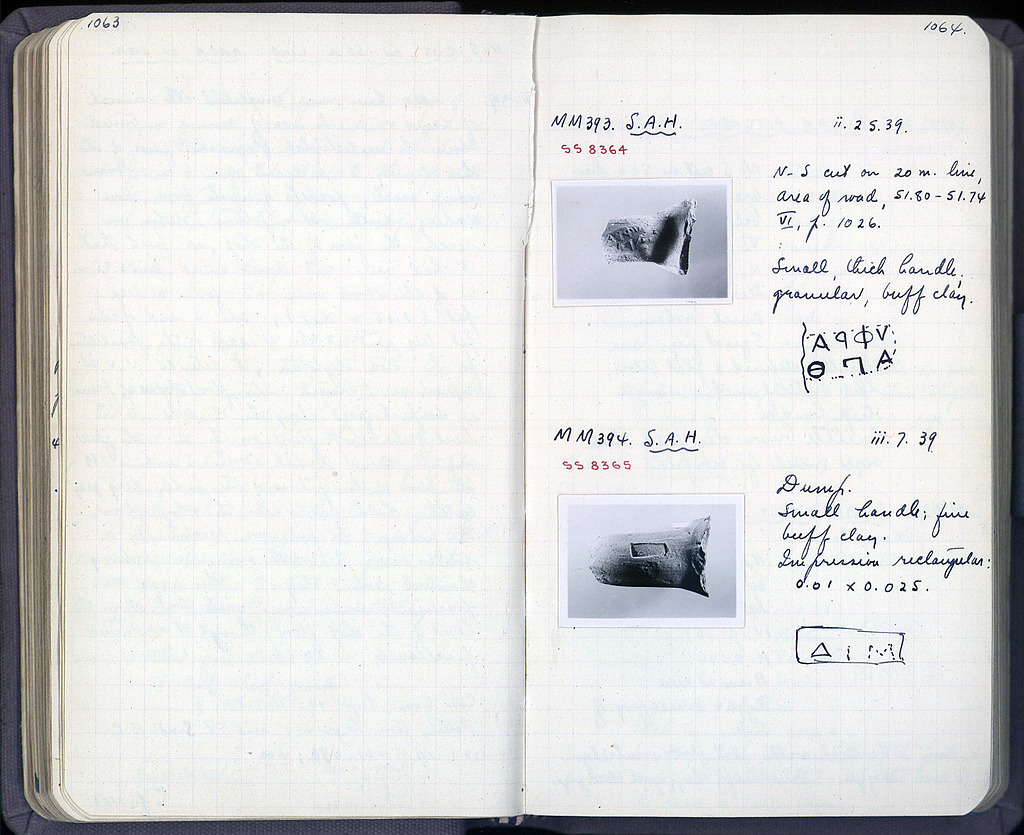 1063
1064.
MM393. S.A.H. ii. 25.39.
SS 8364
N-S cut on 20 m. line,
area of road, 51.80-51.74
VI, p. 1026.
Small, thick handle,
granular, buff clay.
Α Ϙ Φ V
Θ Α
MM394. S.A.H. iii. 7. 39
SS 8365
Dump.
Small handle; fine
buff clay.
Impression rectangular:
0.01 x 0.025.
Δ Ι Μ